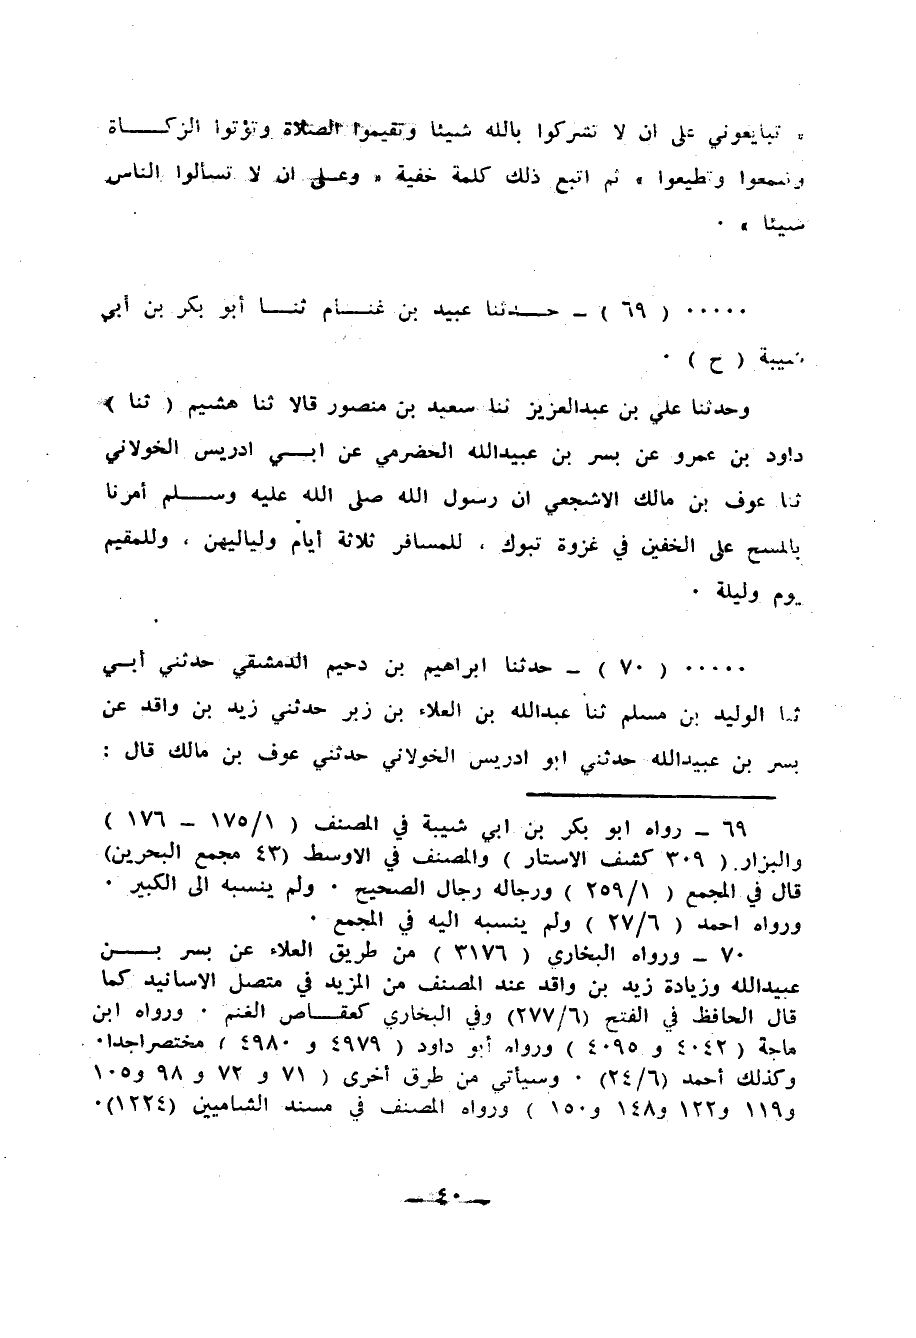 « تبايعوني على ان لا تشركوا بالله شيئا وتقيموا الصلاة وتؤتوا الزكـاة
وتسمعوا وتطيعوا » ثم اتبع ذلك كلمة خفية « وعلى ان لا تسألوا الناس
شيئا » ٠
٠٠٠٠٠ ( ٦٩ ) ـ حـدثنا عبيد بن غنـام ثنـا أبو بكر بن أبي
شيبة ( ح ) ٠
وحدثنا علي بن عبدالعزيز ثنا سعيد بن منصور قالا ثنا هشيم ( ثنا )
داود بن عمرو عن بسر بن عبيدالله الحضرمي عن ابـي ادريس الخولاني
ثنا عوف بن مالك الاشجعي ان رسول الله صلى الله عليه وسـلم أمرنا
بالمسح على الخفين في غزوة تبوك ، للمسافر ثلاثة أيام ولياليهن ، وللمقيم
يوم وليلة ٠
٠٠٠٠٠ ( ٧٠ ) ـ حدثنا ابراهيم بن دحيم الدمشقي حدثني أبـي
ثنا الوليد بن مسلم ثنا عبدالله بن العلاء بن زبر حدثني زيد بن واقد عن
بسر بن عبيدالله حدثني ابو ادريس الخولاني حدثني عوف بن مالك قال :
٦٩ ـ رواه ابو بكر بن ابي شيبة في المصنف ( ١٧٥/١ ـ ١٧٦ )
والبزار ( ٣٠٩ كشف الاستار ) والمصنف في الاوسط (٤٣ مجمع البحرين)
قال في المجمع ( ٢٥٩/١ ) ورجاله رجال الصحيح ٠ ولم ينسبه الى الكبير ٠
ورواه احمد ( ٢٧/٦ ) ولم ينسبه اليه في المجمع ٠
٧٠ ـ ورواه البخاري ( ٣١٧٦ ) من طريق العلاء عن بسر بـن
عبيدالله وزيادة زيد بن واقد عند المصنف من المزيد في متصل الاسانيد كما
قال الحافظ في الفتح (٢٧٧/٦) وفي البخاري كعقـاص الغنم ٠ ورواه ابن
ماجة ( ٤٠٤٢ و ٤٠٩٥ ) ورواه أبو داود ( ٤٩٧٩ و ٤٩٨٠ ) مختصراجدا٠
وكذلك أحمد (٢٤/٦) ٠ وسيأتي من طرق أخرى ( ٧١ و ٧٢ و ٩٨ و١٠٥
و١١٩ و١٢٢ و١٤٨ و١٥٠ ) ورواه المصنف في مسند الشاميين (١٢٢٤)٠
ـ ٤٠ ـ